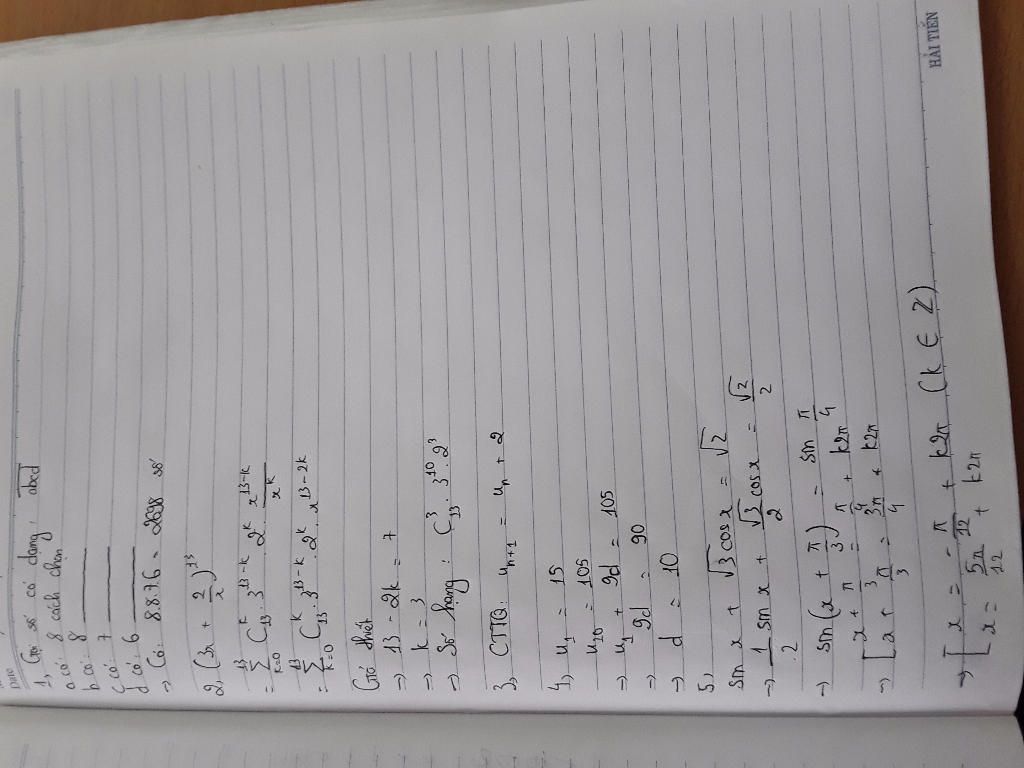 Date
1, Gọi số có dạng: abcd
a có: 8 cách chọn
b có: 8
c có: 7
d có: 6
⇒ Có: 8.8.7.6 = 2688 số
2, (3x + 2/x)^13
= ∑_{k=0}^{13} C_{13}^k . 3^{13-k} . 2^k . x^{13-k}/x^k
= ∑_{k=0}^{13} C_{13}^k . 3^{13-k} . 2^k . x^{13-2k}
Giả thiết
⇒ 13 - 2k = 7
⇒ k = 3
⇒ Số hạng: C_{13}^3 . 3^{10} . 2^3
3, CTTQ: u_{n+1} = u_n + 2
4, u_1 = 15
u_10 = 105
⇒ u_1 + 9d = 105
⇒ 9d = 90
⇒ d = 10
5,
sin x + √3 cos x = √2
⇒ 1/2 sin x + √3/2 cos x = √2/2
⇒ sin(x + π/3) = sin π/4
⇒ [ x + π/3 = π/4 + k2π
[ x + π/3 = 3π/4 + k2π
⇒ [ x = -π/12 + k2π (k ∈ Z)
[ x = 5π/12 + k2π
HẢI TIẾN